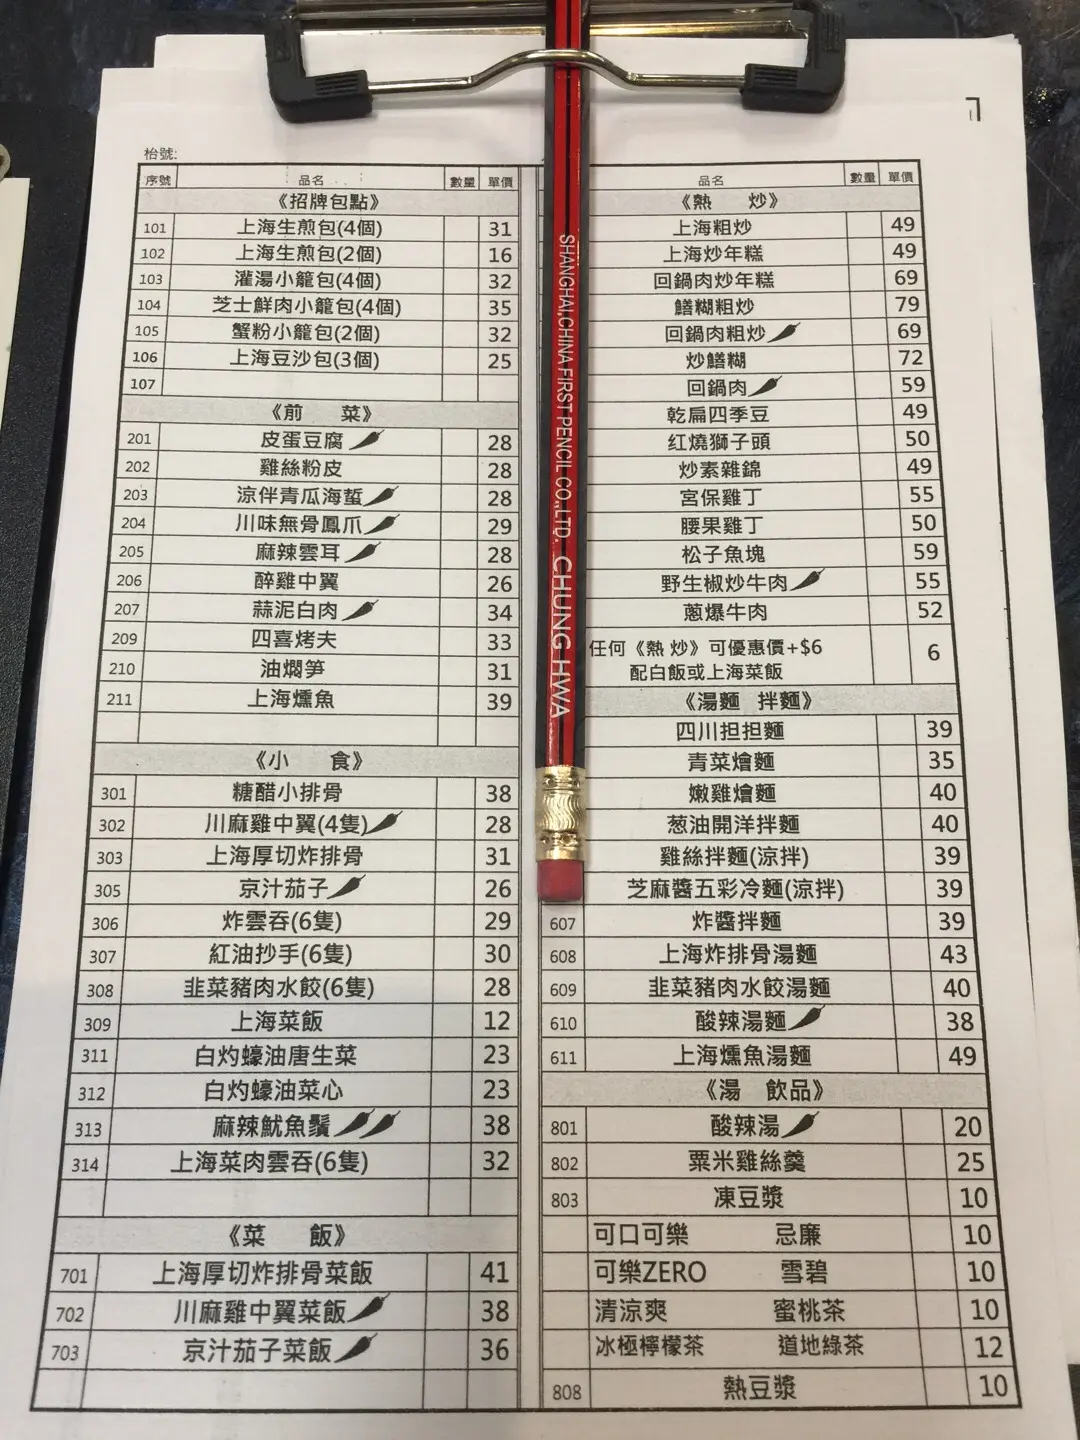 枱號:
序號 品名 數量 單價
《招牌包點》
101 上海生煎包(4個) 31
102 上海生煎包(2個) 16
103 灌湯小籠包(4個) 32
104 芝士鮮肉小籠包(4個) 35
105 蟹粉小籠包(2個) 32
106 上海豆沙包(3個) 25
107
《前 菜》
201 皮蛋豆腐 28
202 雞絲粉皮 28
203 涼伴青瓜海蜇 28
204 川味無骨鳳爪 29
205 麻辣雲耳 28
206 醉雞中翼 26
207 蒜泥白肉 34
209 四喜烤夫 33
210 油燜筍 31
211 上海燻魚 39
《小 食》
301 糖醋小排骨 38
302 川麻雞中翼(4隻) 28
303 上海厚切炸排骨 31
305 京汁茄子 26
306 炸雲吞(6隻) 29
307 紅油抄手(6隻) 30
308 韭菜豬肉水餃(6隻) 28
309 上海菜飯 12
311 白灼蠔油唐生菜 23
312 白灼蠔油菜心 23
313 麻辣魷魚鬚 38
314 上海菜肉雲吞(6隻) 32
《菜 飯》
701 上海厚切炸排骨菜飯 41
702 川麻雞中翼菜飯 38
703 京汁茄子菜飯 36
品名 數量 單價
《熱 炒》
上海粗炒 49
上海炒年糕 49
回鍋肉炒年糕 69
鱔糊粗炒 79
回鍋肉粗炒 69
炒鱔糊 72
回鍋肉 59
乾扁四季豆 49
红燒獅子頭 50
炒素雜錦 49
宮保雞丁 55
腰果雞丁 50
松子魚塊 59
野生椒炒牛肉 55
蔥爆牛肉 52
任何《熱 炒》可優惠價+$6
配白飯或上海菜飯 6
《湯麵 拌麵》
四川担担麵 39
青菜燴麵 35
嫩雞燴麵 40
葱油開洋拌麵 40
雞絲拌麵(涼拌) 39
芝麻醬五彩冷麵(涼拌) 39
607 炸醬拌麵 39
608 上海炸排骨湯麵 43
609 韭菜豬肉水餃湯麵 40
610 酸辣湯麵 38
611 上海燻魚湯麵 49
《湯 飲品》
801 酸辣湯 20
802 粟米雞絲羹 25
803 凍豆漿 10
可口可樂 忌廉 10
可樂ZERO 雪碧 10
清涼爽 蜜桃茶 10
冰極檸檬茶 道地綠茶 12
808 熱豆漿 10
SHANGHAI,CHINA FIRST PENCIL CO.,LTD. CHUNG HWA